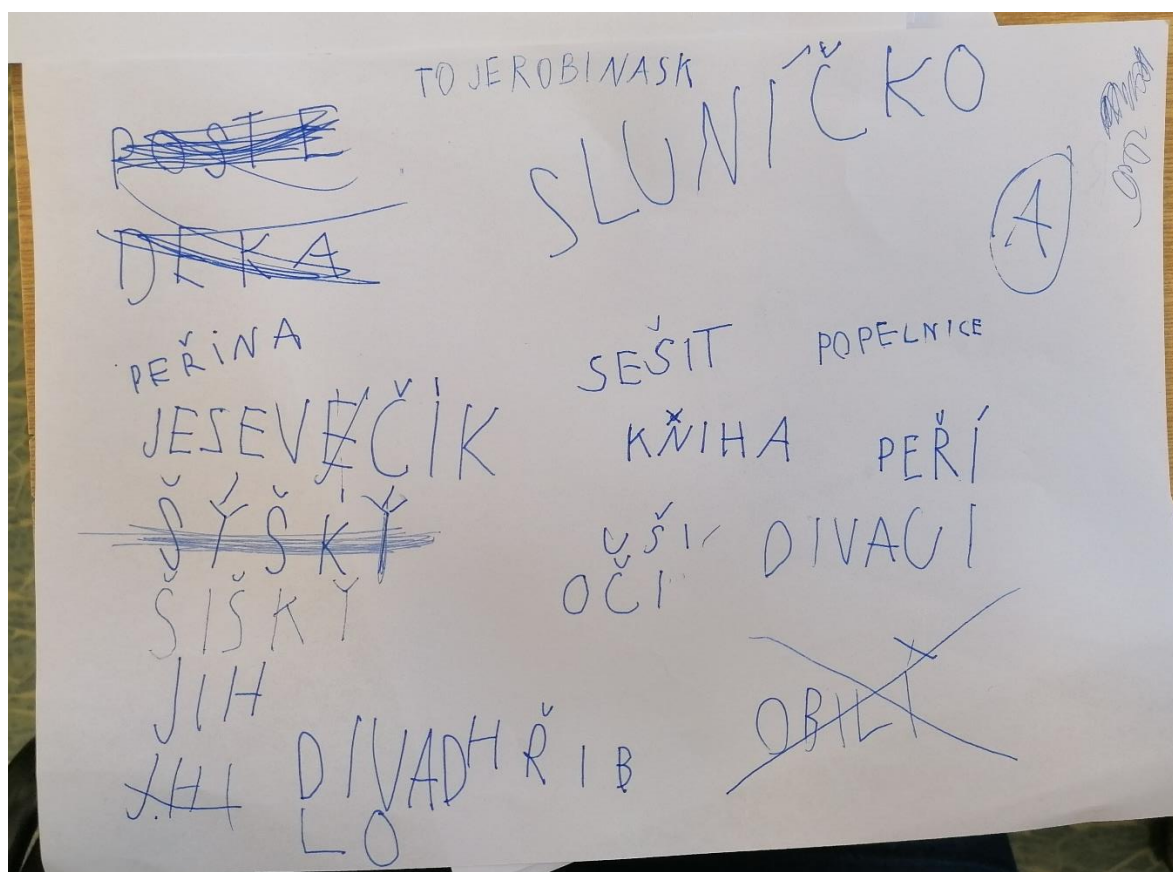 TO JEROBINASK
SLUNÍČKO
POSTE
DEKA
A
PEŘINA
SEŠIT POPELNICE
JESEVEČÍK
KNIHA PEŘÍ
ŠÝŠKÝ
UŠI DIVACI
ŠIŠKY
OČI
JIH
OBILI
JIHI DIVAD HŘIB
LO